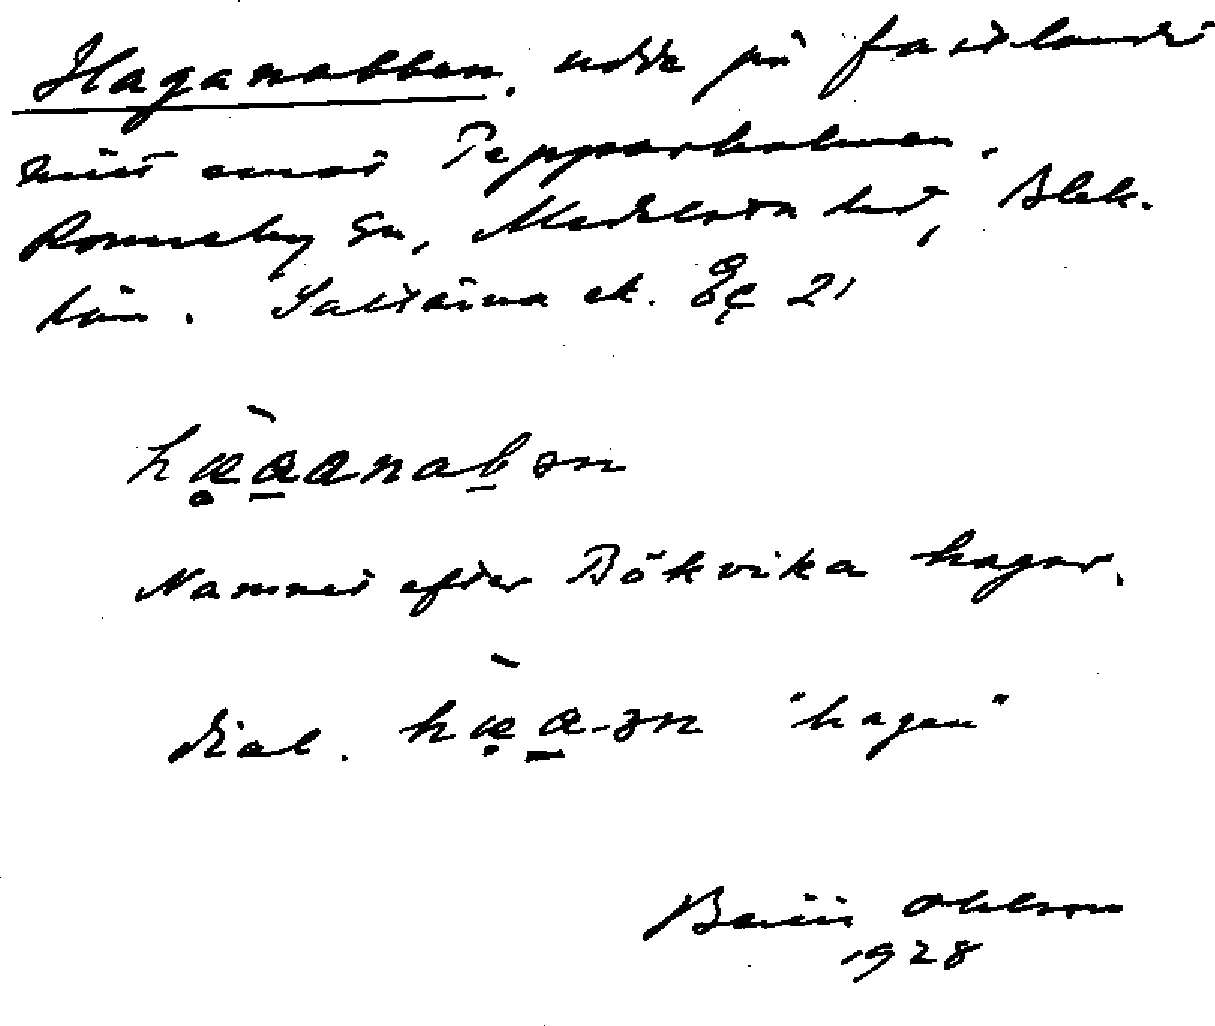 Haganabben, udde på fastlandet
mitt emot Tepparholmen.
Ronneby sn, Medelsta hd, Blek.
län. Saltsjöna ek. Eç 21
hæaanabən
Namnet efter Bökvika hagar.
dial. hæa-ən "hagen"
Bertil Ohlson
1928